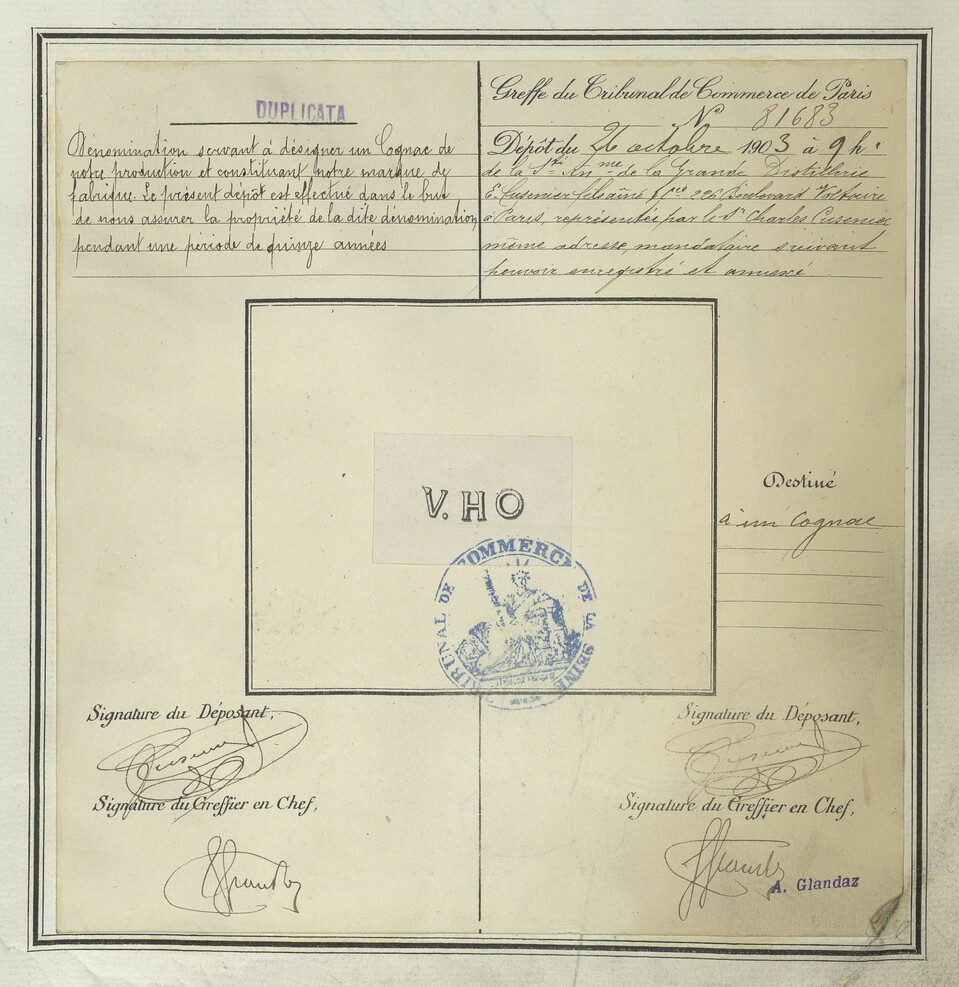 DUPLICATA
Dénomination servant à désigner un Cognac de
notre production et constituant notre marque de
fabrique. Le présent dépôt est effectué dans le but
de nous assurer la propriété de la dite dénomination
pendant une période de quinze années
Greffe du Tribunal de Commerce de Paris
N° 81683
Dépôt du 26 octobre 1903 à 9 h.
de la Sté Ame de la Grande Distillerie
E. Cusenier fils aîné & Cie 226 Boulevard Voltaire
à Paris, représentée par le Sr Charles Cusenier
même adresse, mandataire suivant
pouvoir enregistré et annexé
V.HO
Destiné
à un Cognac
TRIBUNAL DE COMMERCE DE LA SEINE
Signature du Déposant,
Cusenier
Signature du Greffier en Chef,
Signature du Déposant,
Cusenier
Signature du Greffier en Chef,
A. Glandaz